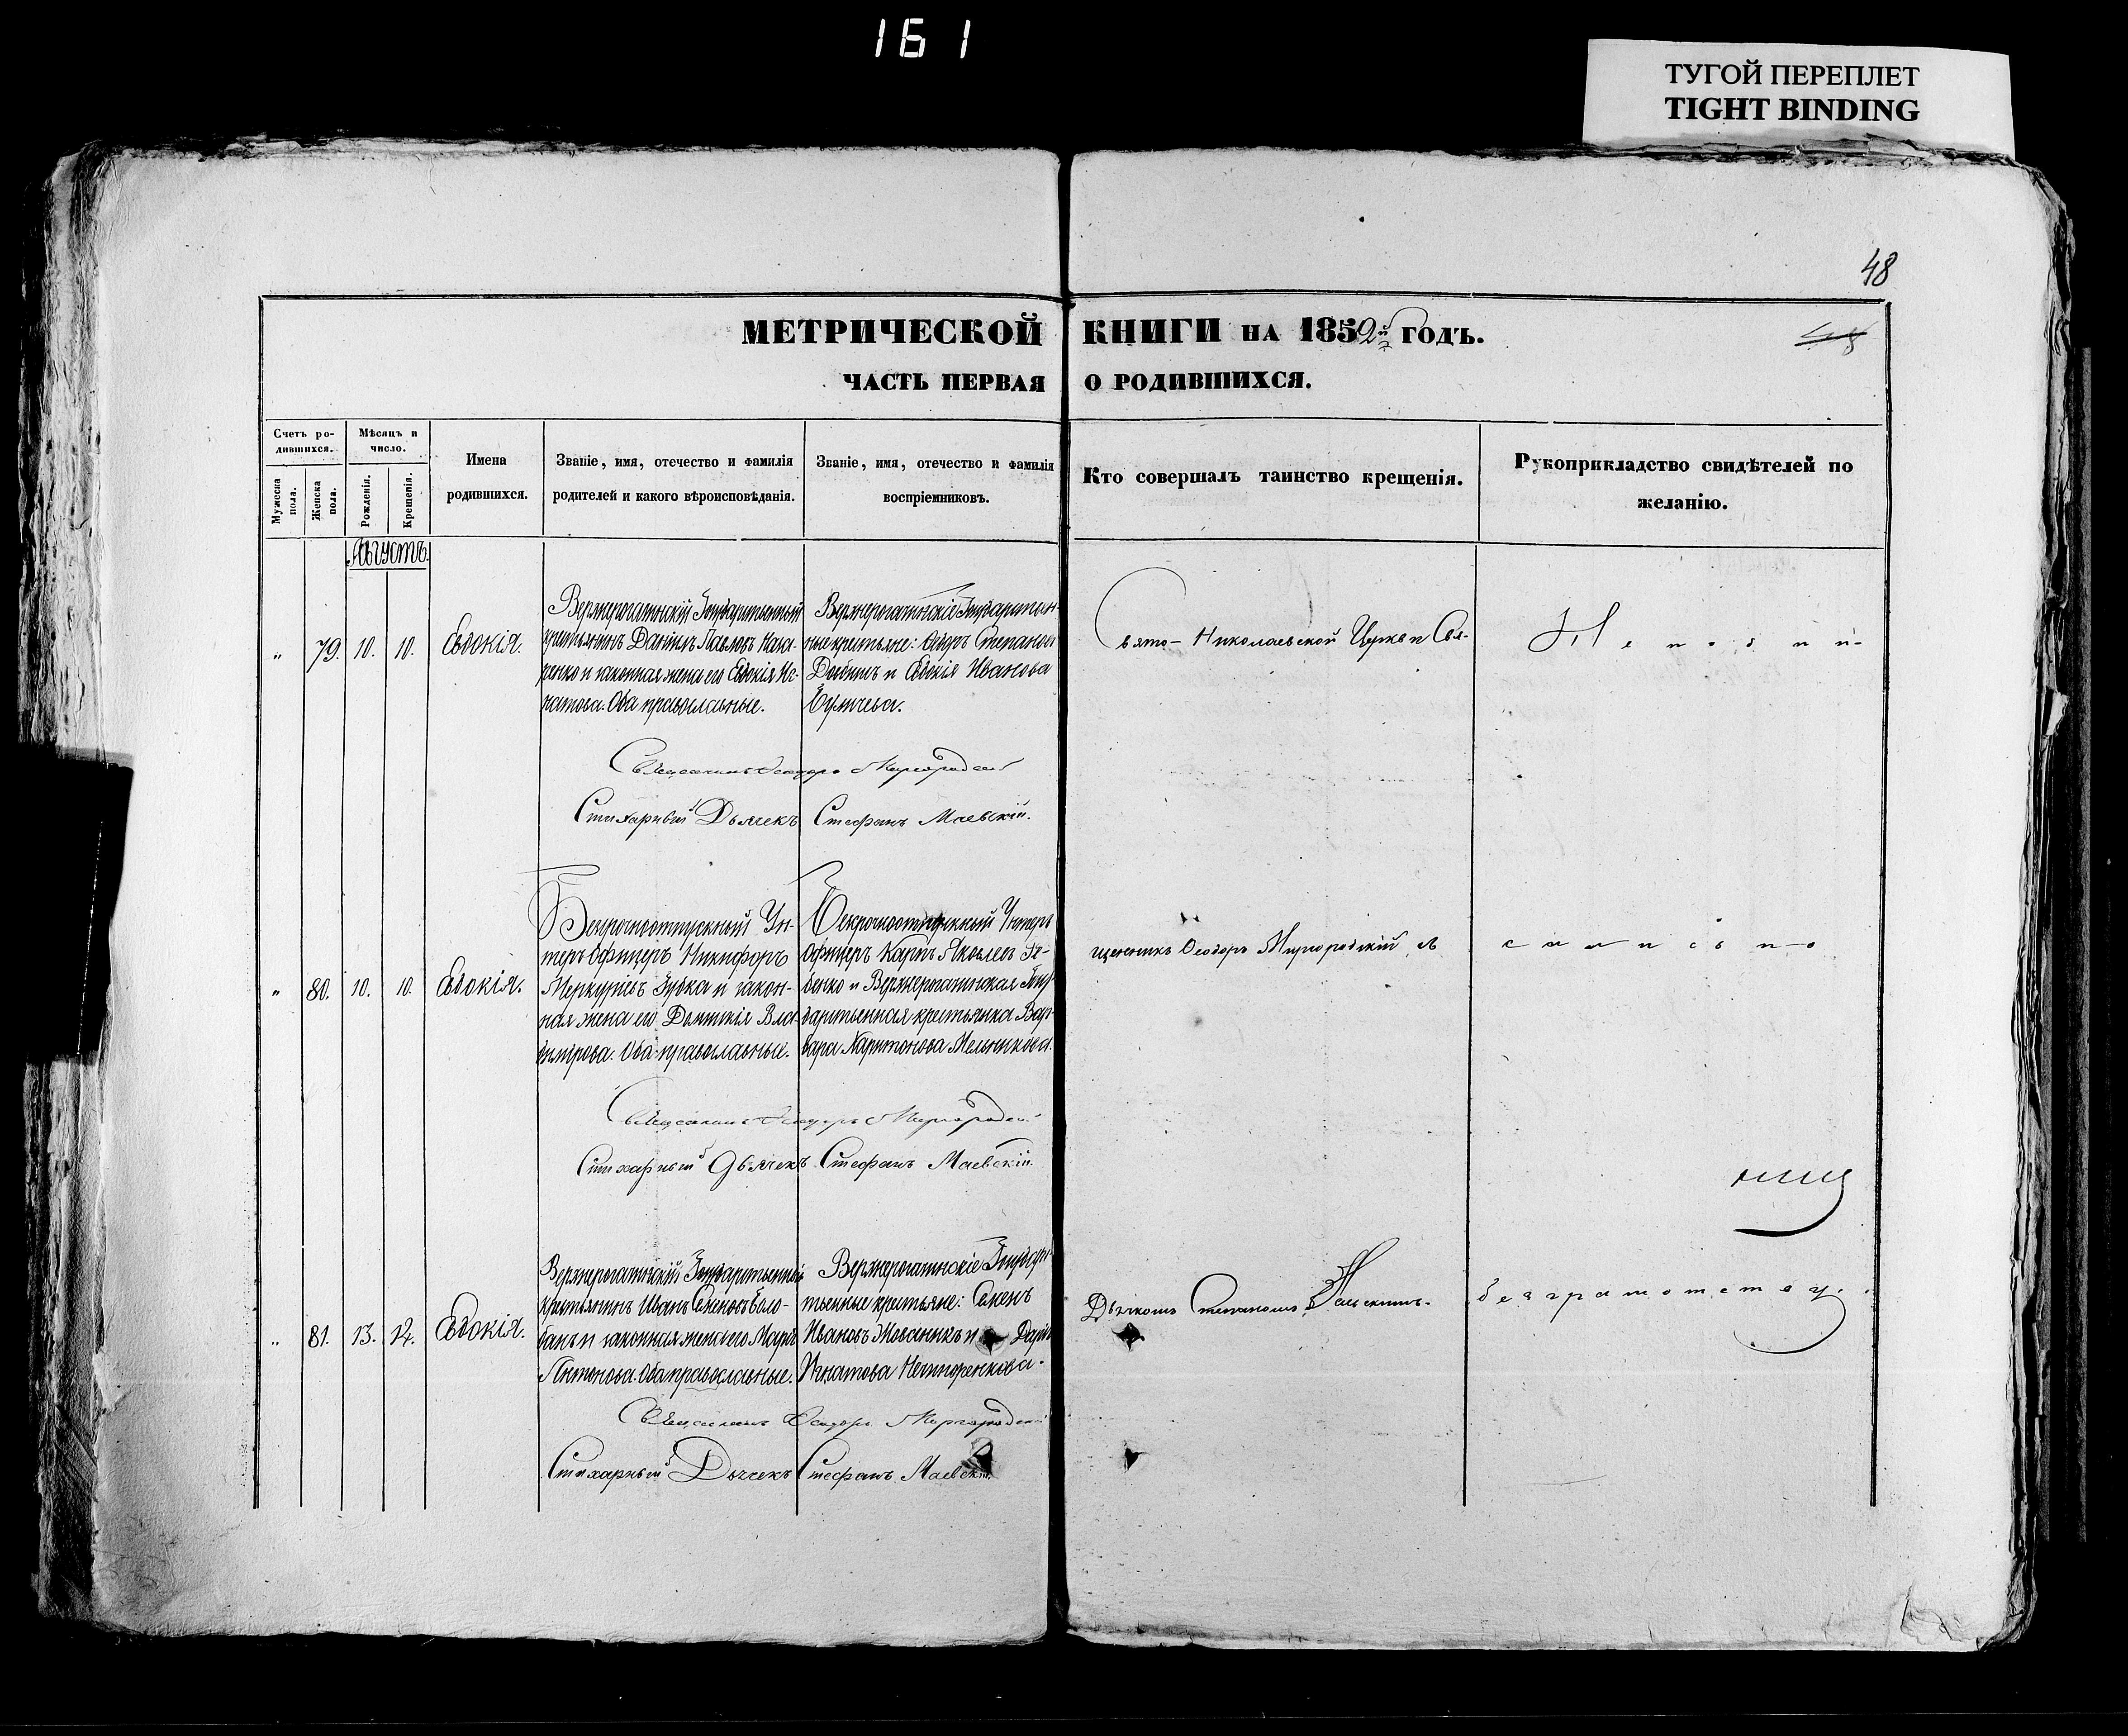 161
ТУГОЙ ПЕРЕПЛЕТ
TIGHT BINDING
48
МЕТРИЧЕСКОЙ КНИГИ НА 1852й ГОДЪ.
ЧАСТЬ ПЕРВАЯ О РОДИВШИХСЯ.
Счетъ ро-
дившихся.
Мужеска пола.
Женска пола.
Мѣсяцъ и
число.
Рожденія.
Крещенія.
Имена
родившихся.
Званіе, имя, отечество и фамилія
родителей и какого вѣроисповѣданія.
Званіе, имя, отечество и фамилія
воспріемниковъ.
Кто совершалъ таинство крещенія.
Рукоприкладство свидѣтелей по
желанію.
Августъ.
„ 79. 10. 10. Евдокія.
Верхнерогачинскій Государственный
крестьянинъ Даніилъ Павловъ Наза-
ренко и законная жена его Евдокія Иг-
натова. Оба православные.
Верхнерогачинскіе Государствен-
ные крестьяне: Ѳедоръ Степановъ
и Евдокія Иванова
Священникъ Ѳеодоръ Миргородскій
Стихарный Дьячекъ Стефанъ Маевскій.
„ 80. 10. 10. Евдокія.
Безсрочноотпускный Ун-
теръ Офицеръ Никифоръ
Меркуріевъ Зубка и закон-
ная жена его Домникія Вла-
димірова. Оба православные.
Безсрочноотпускный Унтеръ
Офицеръ Карпъ Яковлевъ
и Верхнерогачинская Госу-
дарственная крестьянка Вар-
вара Харитонова Мельникова.
Священникъ Ѳеодоръ Миргородскій
Стихарный Дьячекъ Стефанъ Маевскій.
„ 81. 13. 14. Евдокія.
Верхнерогачинскій Государственный
крестьянинъ Иванъ Семеновъ Боло-
банъ и законная жена его Марѳа
Антонова. Оба православные.
Верхнерогачинскіе Государс-
твенные крестьяне: Семенъ
Ивановъ и Дарія
Игнатова Нечипоренкова.
Священникъ Ѳеодоръ Миргородскій
Стихарный Дьячекъ Стефанъ Маевскій
Свято-Николаевской Церкви Свя-
щенникъ Ѳеодоръ Миргородскій съ
Дьячкомъ Стефаномъ Маевскимъ.
Неподпи-
сались по
безграмотству.